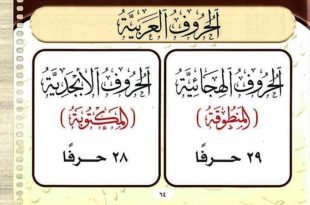 الحُرُوفُ العَرَبِيَّة
الحُرُوفُ الهِجَائِيَّة
(المَنْطُوقَة)
٢٩ حَرْفًا
الحُرُوفُ الأَبْجَدِيَّة
(المَكْتُوبَة)
٢٨ حَرْفًا
٦٤